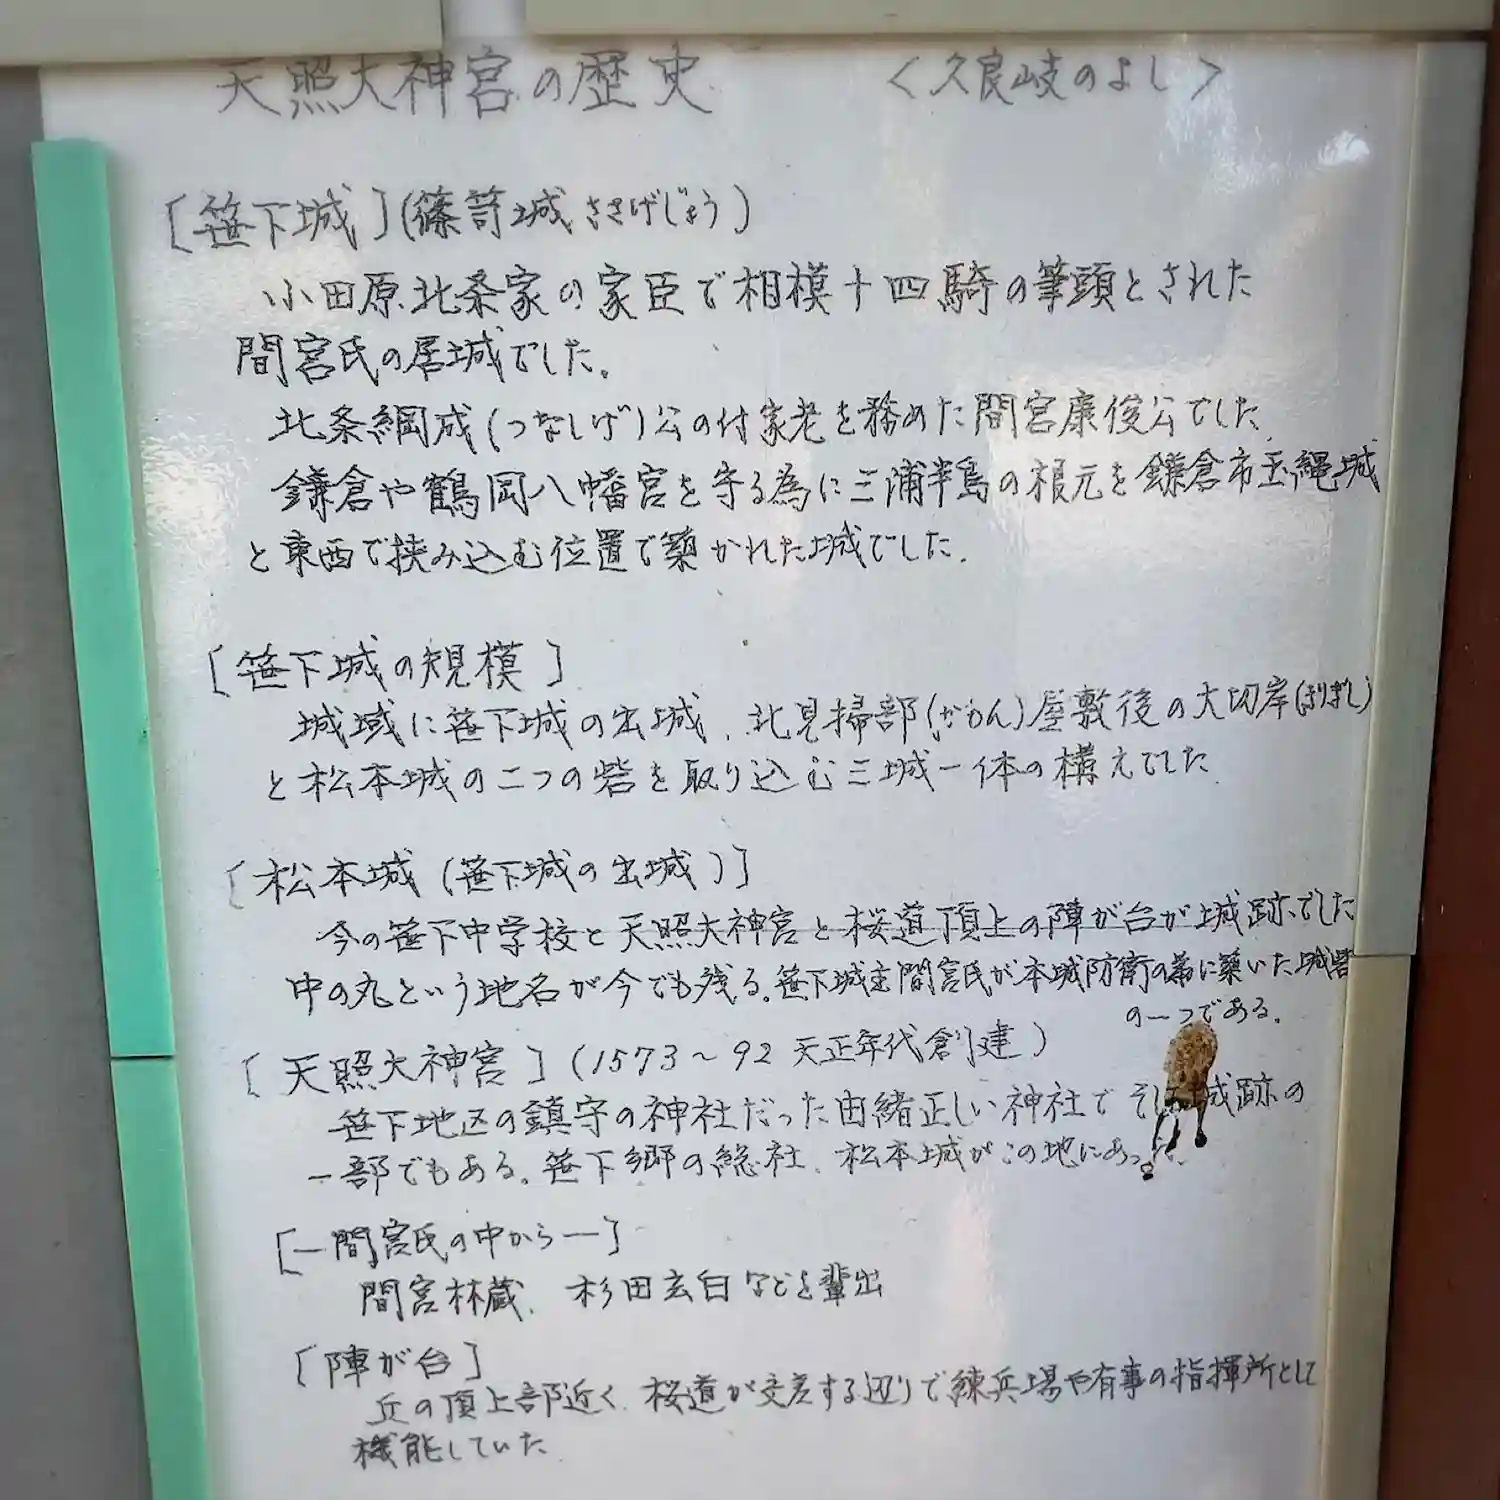 天照大神宮の歴史 <久良岐のよし>
[笹下城](篠笥城 ささげじょう)
小田原北条家の家臣で相模十四騎の筆頭とされた
間宮氏の居城でした。
北条綱成(つなしげ)公の付家老を務めた間宮康俊公でした。
鎌倉や鶴岡八幡宮を守る為に三浦半島の根元を鎌倉市玉縄城
と東西で挟み込む位置で築かれた城でした。
[笹下城の規模]
城域に笹下城の出城、北見掃部(かもん)屋敷後の大切岸(きりぎし)
と松本城の二つの砦を取り込む三城一体の構えでした。
[松本城(笹下城の出城)]
今の笹下中学校と天照大神宮と桜道頂上の陣が台が城跡でした
中の丸という地名が今でも残る。笹下城主間宮氏が本城防衛の為に築いた城砦
の一つである。
[天照大神宮](1573～92 天正年代創建)
笹下地区の鎮守の神社だった由緒正しい神社で 城跡の
一部でもある。笹下郷の総社、松本城がこの地にあった。
[ー間宮氏の中からー]
間宮林蔵、杉田玄白などを輩出
[陣が台]
丘の頂上部近く、桜道が交差する辺りで練兵場や有事の指揮所として
機能していた